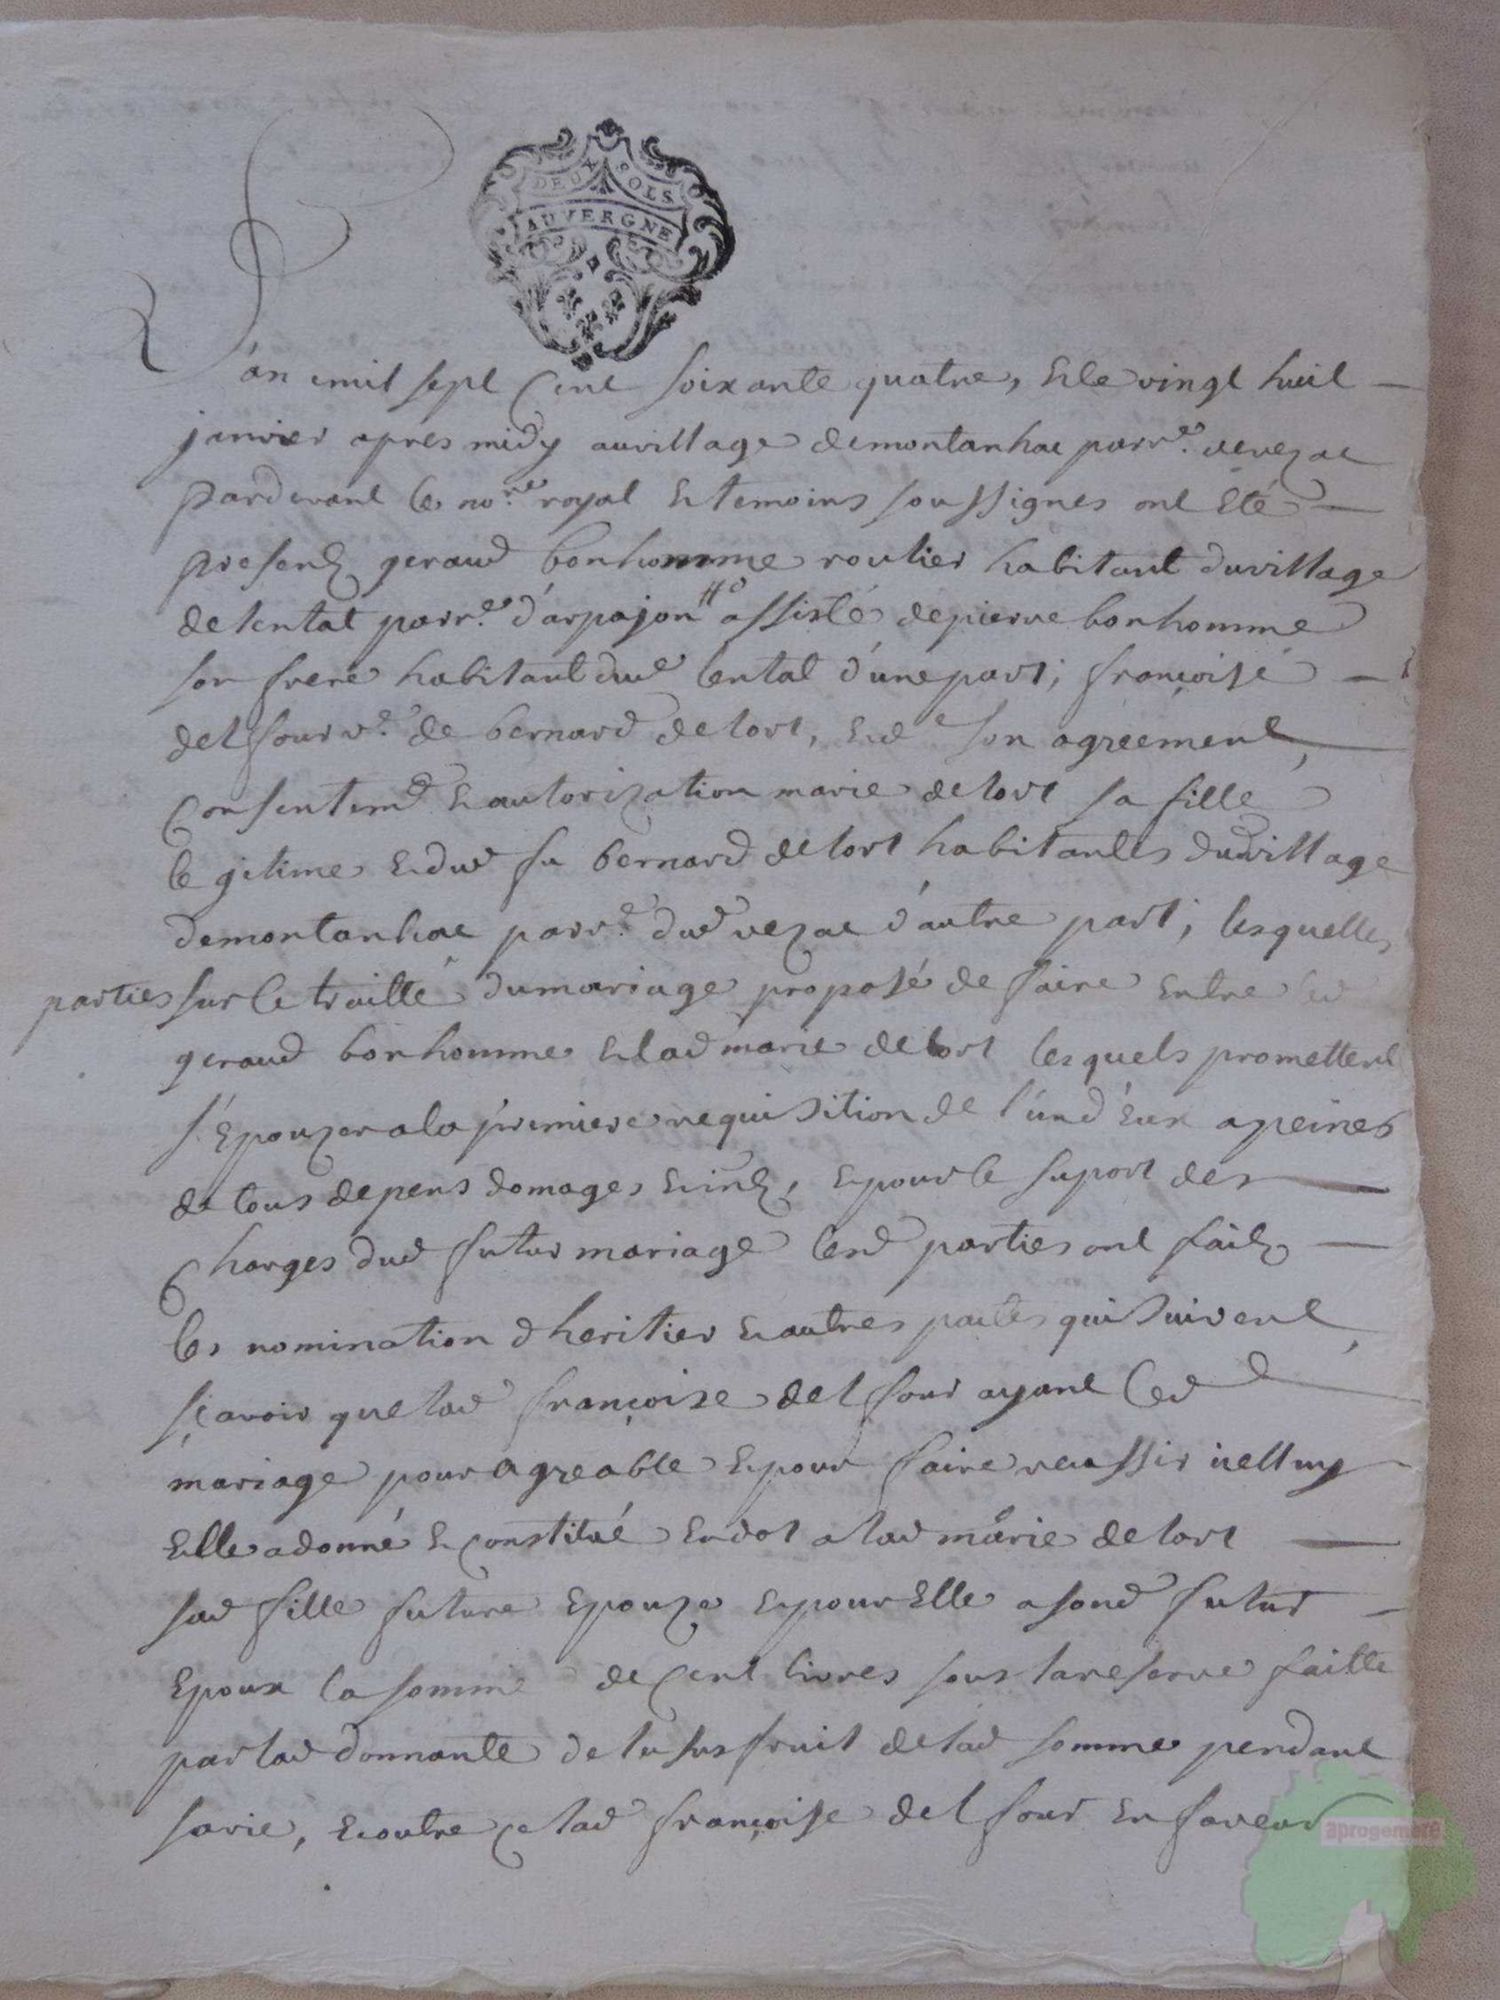 DEUX SOLS
AUVERGNE
L'an mil sept cent soixante quatre, et le vingt huit
janvier apres midy au village de montanhac parr.e de vezac
Pardevant le no.re royal et temoins soussignes ont eté
presents geraud bonhomme routier habitant du village
de lentat parr.e d'arpajon assisté de pierre bonhomme
son frere habitant dud lentat d'une part; françoise
delfour v.e de bernard delort, et de son agreement,
consentemt et autorization marie delort sa fille
legitime et dud fu bernard delort habitantes du village
de montanhac parr.e dud vezac d'autre part; lesquelles
parties sur le traitté du mariage proposé de faire entre led
geraud bonhomme et lad marie delort lesquels promettent
s'epouzer a la premiere requisition de l'un d'eux a peines
de tous depens domages et ints, et pour le suport des
charges dud futur mariage lesd parties ont faits
les nomination d'heritier et autres pactes qui suivent,
sçavoir que lad françoize delfour ayant led
mariage pour agreable et pour faire reussir icelluy
elle a donné et constitué en dot a lad marie delort
sad fille future epouze et pour elle a sond futur
epoux la somme de cent livres sous la reserve faitte
par lad donnante de l'usufruit de lad somme pendant
sa vie, et outre ce lad françoise delfour en faveur
aprogemere